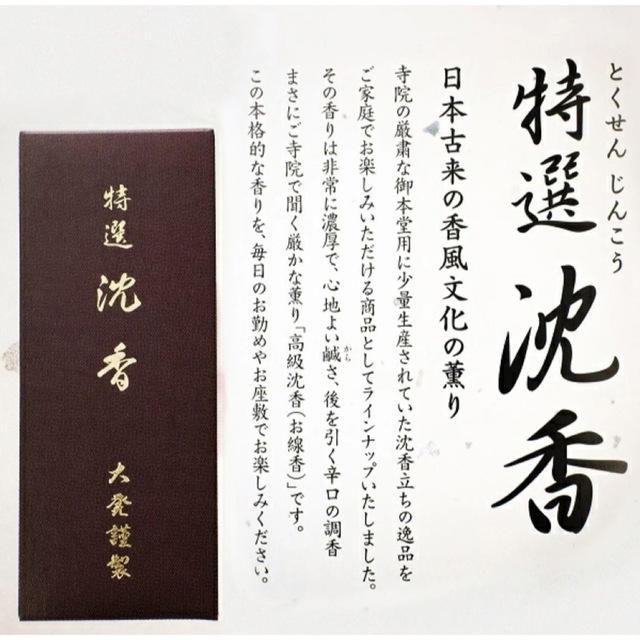 とくせん じんこう
特選 沈香
日本古来の香風文化の薫り
寺院の厳粛な御本堂用に少量生産されていた沈香立ちの逸品を
ご家庭でお楽しみいただける商品としてラインナップいたしました。
その香りは非常に濃厚で、心地よい鹹さ、後を引く辛口の調香
から
まさにご寺院で聞く厳かな薫り「高級沈香(お線香)」です。
この本格的な香りを、毎日のお勤めやお座敷でお楽しみください。
特選
沈香
大発謹製